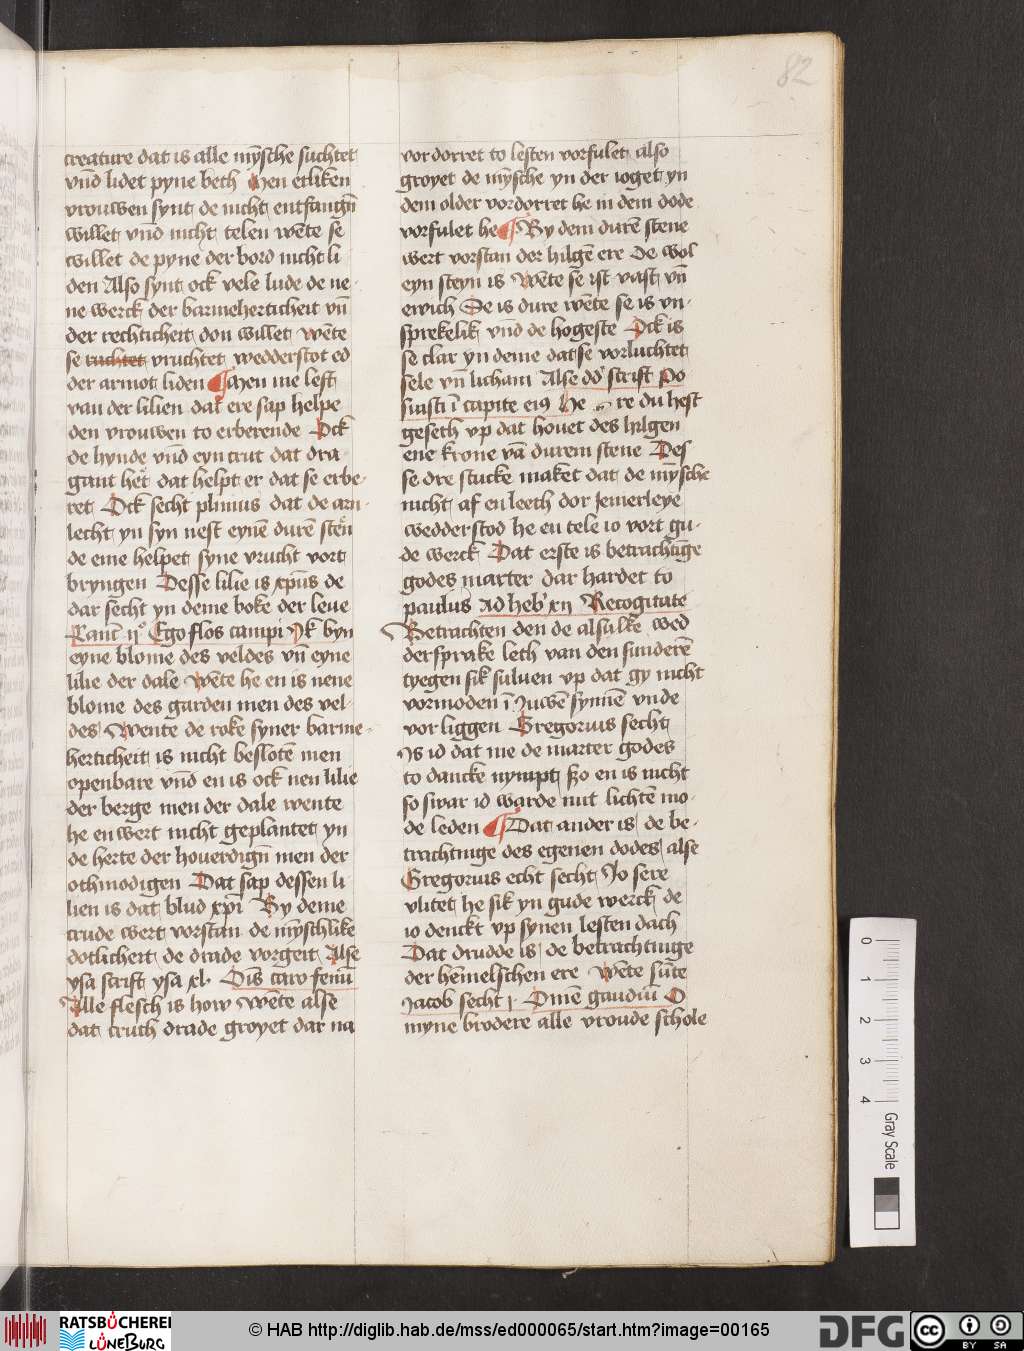 82
creature dat is alle mỹsche suchtet
vñd lidet pyne beth Men etliken
vrouwen synt de nicht entfangñ
willet vñd nicht telen wēte se
willet de pyne der bord nicht li
den Also synt ock vele lude de ne-
ne werck der barmeherticheit vñ
der rechticheit don willet wēte
se ruchtet vruchtet wedderstot ed
der armot liden Men me lest
van der lilien dat ere sap helpe
den vrouwen to erberende Ock
de hynde vñd eyn crut dat dra-
gant het dat helpt er dat se erbe-
ret Ock secht plinius dat de arn-
lecht yn syn nest eynē durē stēn
de eme helpet syne vrucht vort
bryngen Desse lilie is xp̄us de
dar secht yn deme boke der leue
Canť ijº Ego flos campi Ik byn
eyne blome des veldes vñ eyne
lilie der dale Wēte he en is nene
blome des garden men des vel-
des Wente de roke syner barme-
herticheit is nicht beslotē men
openbare vñd en is ock nen lilie
der berge men der dale wente
he en wert nicht geplantet yn
de herte der houerdigñ men der
othmodigen Dat sap dessen li
lien is dat blud xpī By deme
crude wert vorstan de mỹschlike
dotlicheit de drade vorgeit Alse
ysa scrift ysa xl. Oīs caro fenū
Alle flesch is how Wēte alse
dat cruth drade groyet dar na
vordorret to lesten vorfulet also
groyet de mỹsche yn der ioget yn
dem older vordorret he in dem dode
vorfulet he By dem durē stene
wert vorstan der hilgē ere De wol
eyn steyn is Wēte se ist vast vñ
ewich Se is dure wēte se is vn-
sprekelik vñd de hogeste Ock is
se clar yn deme dat se vorluchtet
sele vñ licham Alse dd' scrift Po
suisti ī capite eiꝯ He re du hest
geseth vp dat houet des hilgen
ene krone vā durem stene Des
se dre stucke maket dat de mỹsche
nicht af en leeth dor jemerleye
wedderstod he en tele io vort gu-
de werck Dat erste is betrachtīge
godes marter dar hardet to
paulus Ad heb' xij Recogitate
Betrachten den de alsulke wed
dersprake leth van den sunderē
tyegen sik suluen vp dat gy nicht
vormoden ī Juwē synnē vnde
vor liggen Gregorius secht
Is id dat me de marter godes
to dancke nympt szo en is nicht
so swar id warde mit lichtē mo-
de leden Dat ander is de be-
trachtnige des egenen dodes alse
Gregorius echt secht Jo sere
vlitet he sik yn gude werck de
io denckt vp synen lesten dach
Dat drudde is de betrachtnige
der hēmelschen ere Wēte sūte
Jacob secht j. Omē gaudiū O
myne brodere alle vroude schole
0
1
2
3
4
Gray Scale
RATSBÜCHEREI
LÜNEBURG
© HAB http://diglib.hab.de/mss/ed000065/start.htm?image=00165
DFG
cc
BY
SA